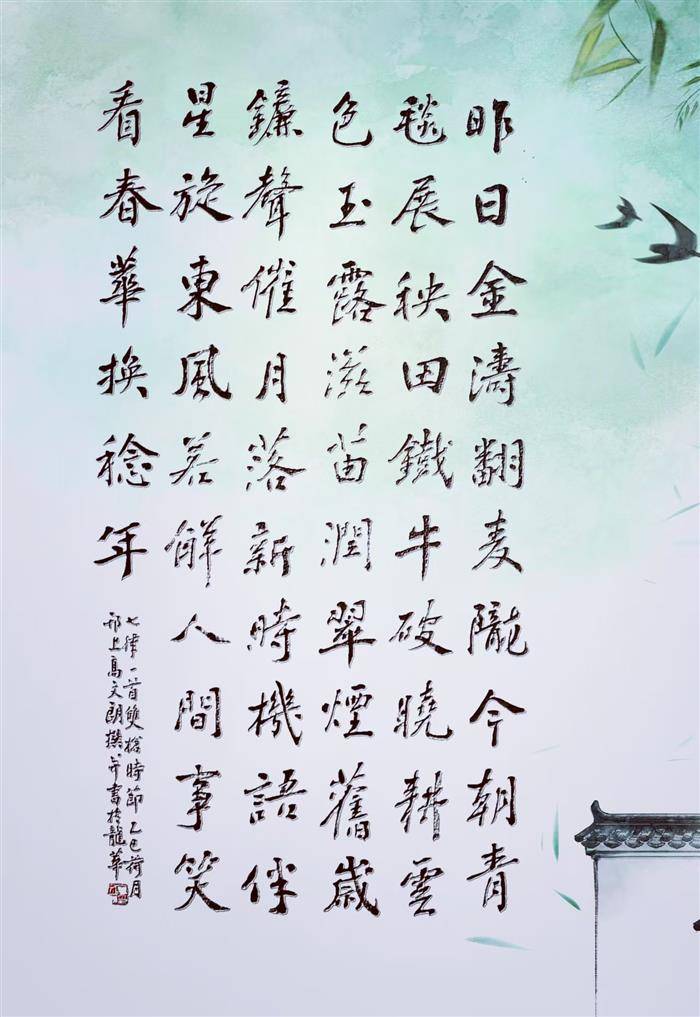 昨日金濤翻麦隴今朝青
毯展秧田鐵牛破曉耕雲
色玉露滋苗潤翠煙舊歲
鐮聲催月落新時機語伴
星旋東風若解人間事笑
看春華換稔年
七律一首雙搶時節乙巳荷月
邗上高文朗撰并書於龍華